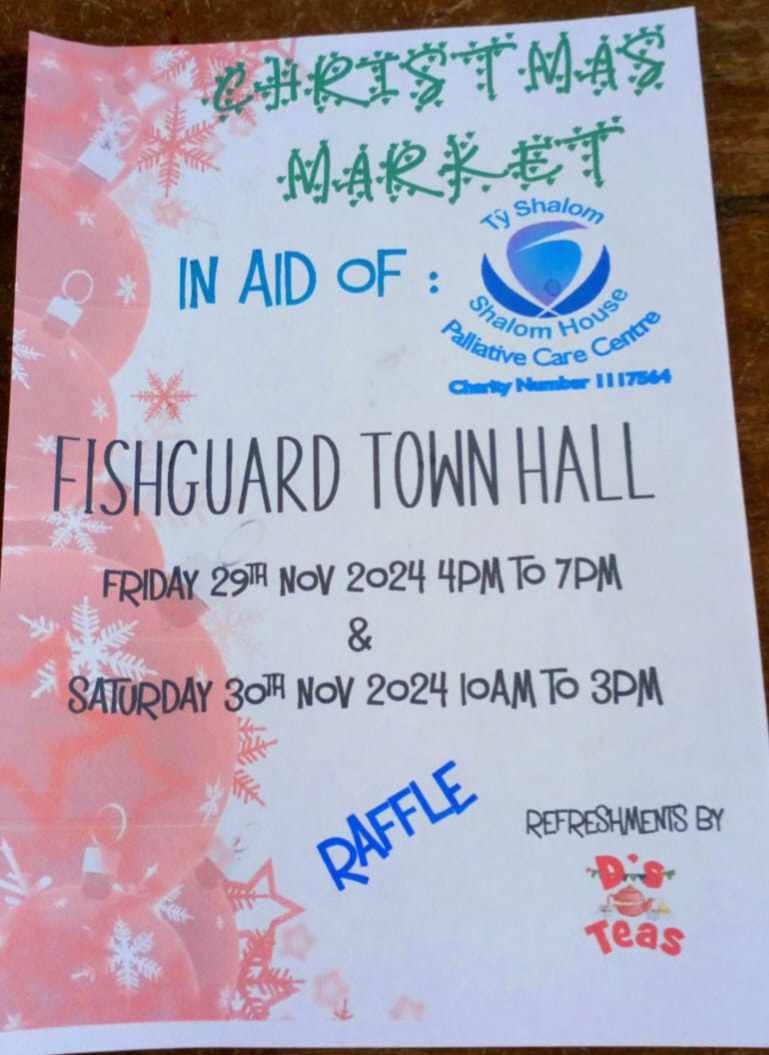 CHRISTMAS
MARKET
IN AID OF :
Tŷ Shalom
Shalom House
Palliative Care Centre
Charity Number 1117564
FISHGUARD TOWN HALL
FRIDAY 29TH NOV 2024 4PM TO 7PM
&
SATURDAY 30TH NOV 2024 10AM TO 3PM
RAFFLE
REFRESHMENTS BY
D's
Teas